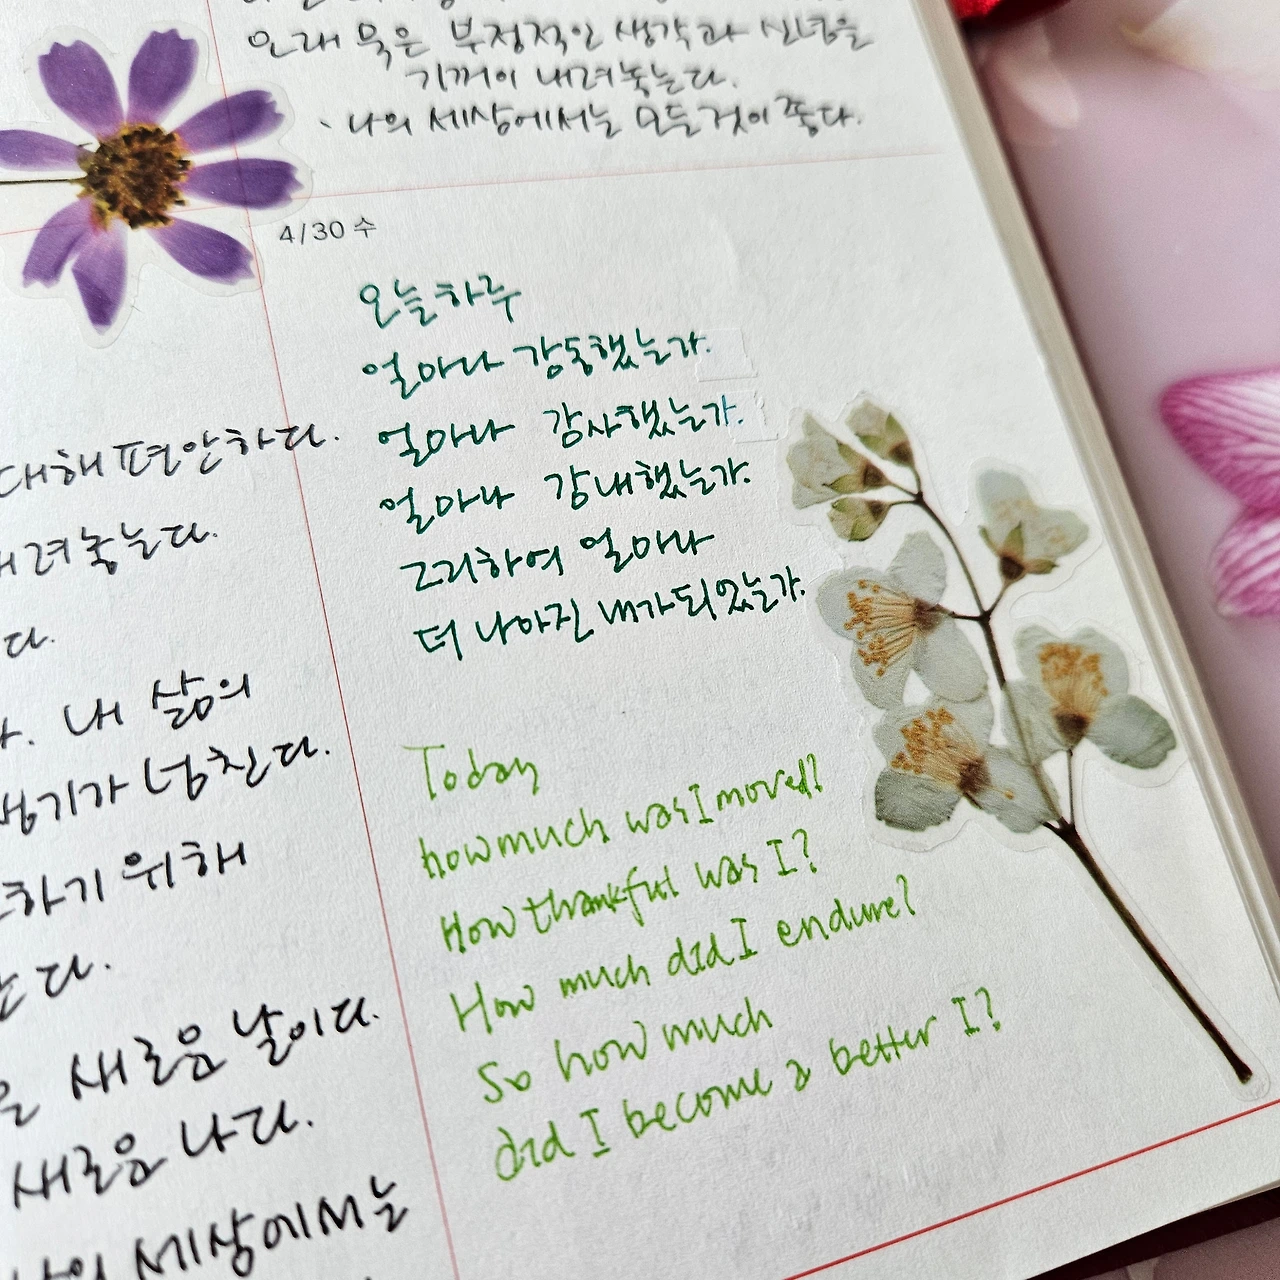 오래 묵은 부정적인 생각과 신념을
기꺼이 내려놓는다.
· 나의 세상에서는 모든것이 좋다.
4/30 수
오늘하루
얼마나 감동했는가.
얼마나 감사했는가.
얼마나 감내했는가.
그리하여 얼마나
더 나아진 내가되었는가.
Today
how much was I moved?
How thankful was I?
How much did I endure?
So how much
did I become a better I?
대해 편안하다.
려놓는다.
다.
내 삶의
생기가 넘친다.
하기 위해
다.
새로운 날이다.
새로운 나다.
세상에서는